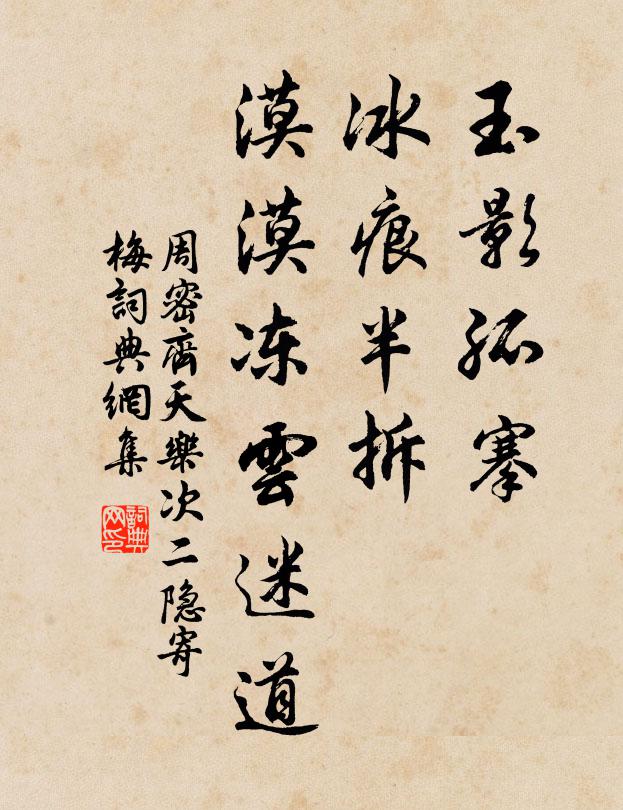 玉影孤搴
冰痕半拆
漠漠冻雲迷道
周密齊天樂次二隐寄
梅詞典網集
詞典网印